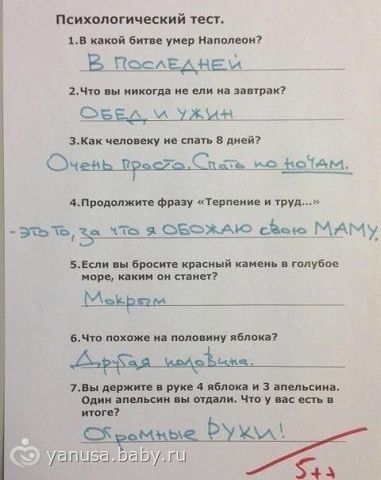 Психологический тест.
1.В какой битве умер Наполеон?
В ПОСЛЕДНЕЙ
2.Что вы никогда не ели на завтрак?
ОБЕД И УЖИН
3.Как человеку не спать 8 дней?
Очень просто. Спать по НОЧАМ.
4.Продолжите фразу «Терпение и труд...»
- это то, за что я ОБОЖАЮ свою МАМУ.
5.Если вы бросите красный камень в голубое
море, каким он станет?
Мокрым
6.Что похоже на половину яблока?
Другая половина.
7.Вы держите в руке 4 яблока и 3 апельсина.
Один апельсин вы отдали. Что у вас есть в
итоге?
Огромные РУКИ!
5++
yanusa.baby.ru